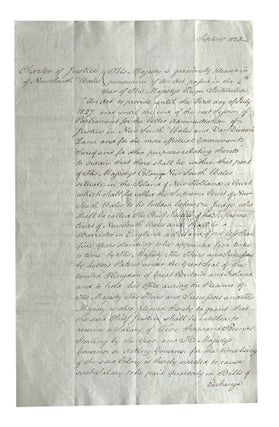 Septemr 1823
Charter of Justice His Majesty is graciously pleased in
of New South Wales pursuance of an Act passed in the 4th
Year of His Majestys Reign Instituted
An Act to provide until the First day of July
1827 and until the end of the next Session of
Parliament for the better Administration of
Justice in New South Wales and Van Diemens
Land and for the more effectual Government
thereof and for other purposes relating thereto
to ordain that there shall be within that part
of His Majestys Colony New South Wales
situate in the Island of New Holland a Court
which shall be called the Supreme Court of New
South Wales to be holden before one Judge who
shall be called The Chief Justice of the Supreme
Court of New South Wales and shall be a
Barrister in England or Ireland of not less than
five Years standing to be appointed from time
to time by His Majesty His Heirs and Successors
by Letters Patent under the Great Seal of the
United Kingdom of Great Britain and Ireland
and to hold his Office during the Pleasure of
His Majesty His Heirs and Successors and His
Majesty is also pleased thereby to grant that
the said Chief Justice shall be entitled to
receive a Salary of Two thousand Pounds
Sterling by the Year and His Majestys
Governor or Acting Governor for the time being
of the said Colony is thereby directed to cause
such Salary to be paid Quarterly in Bills of
Exchange